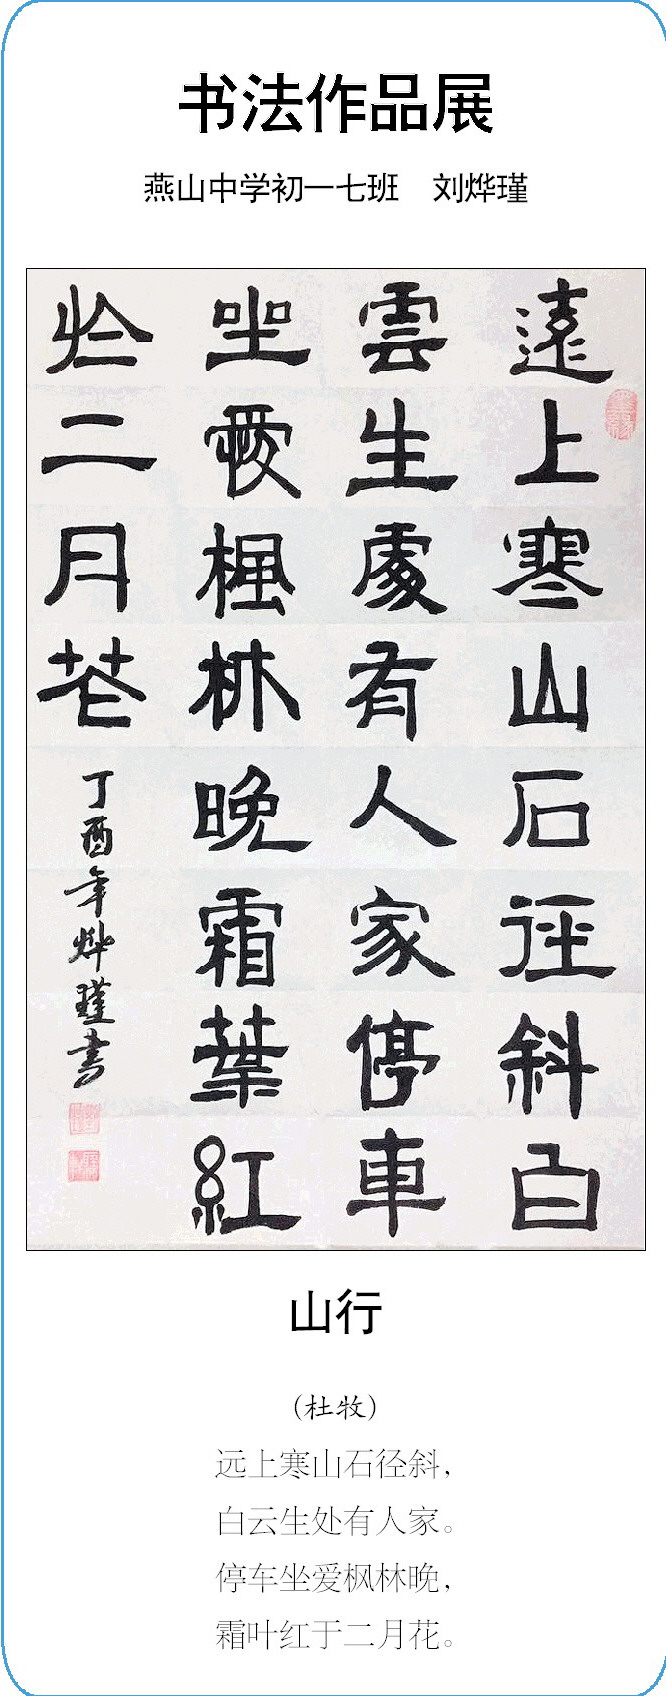 书法作品展
燕山中学初一七班 刘烨瑾
遠上寒山石徑斜白
雲生處有人家停車
坐愛楓林晚霜葉紅
於二月花
丁酉年烨瑾書
山行
（杜牧）
远上寒山石径斜，
白云生处有人家。
停车坐爱枫林晚，
霜叶红于二月花。